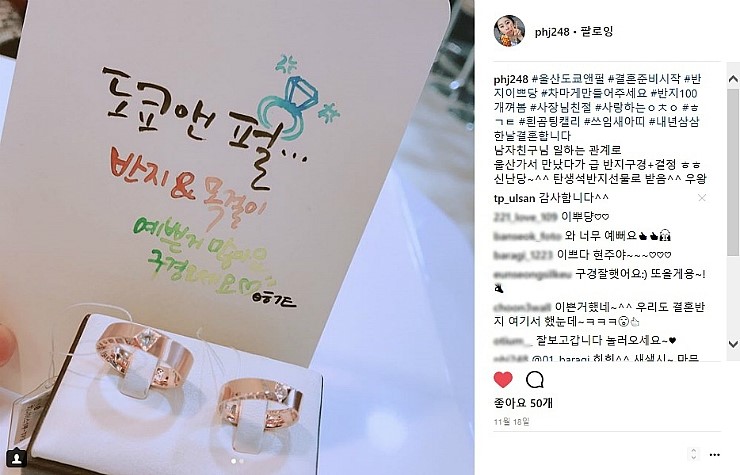 도쿄앤 펄...
반지 & 목걸이
예쁜거 많아요
구경하세요♡
phj248 • 팔로잉
phj248 #울산도쿄앤펄 #결혼준비시작 #반
지이쁘당 #차마게만들어주세요 #반지100
개껴봄 #사장님친절 #사랑하는ㅇㅊㅇ #ㅎ
ㄱㅌ #흰곰팅캘리 #쓰임새아띠 #내년삼삼
한날결혼합니다
남자친구님 일하는 관계로
울산가서 만났다가 급 반지구경+결정 ㅎㅎ
신난당~^^ 탄생석반지선물로 받음^^ 우왕
tp_ulsan 감사합니다^^
221_love_109 이뿌당♡♡
banseok_foto 와 너무 예뻐요
baragi_1223 이쁘다 현주야~~~♡♡♡
eunseongsilkeu 구경잘했어요:) 또올게용~!
choon3wall 이쁜거했네~^^ 우리도 결혼반
지 여기서 했눈데~ㅋㅋㅋ
otium__ 잘보고갑니다 놀러오세요~♥
phj248 @01_baragi 히히^^
좋아요 50개
11월 18일